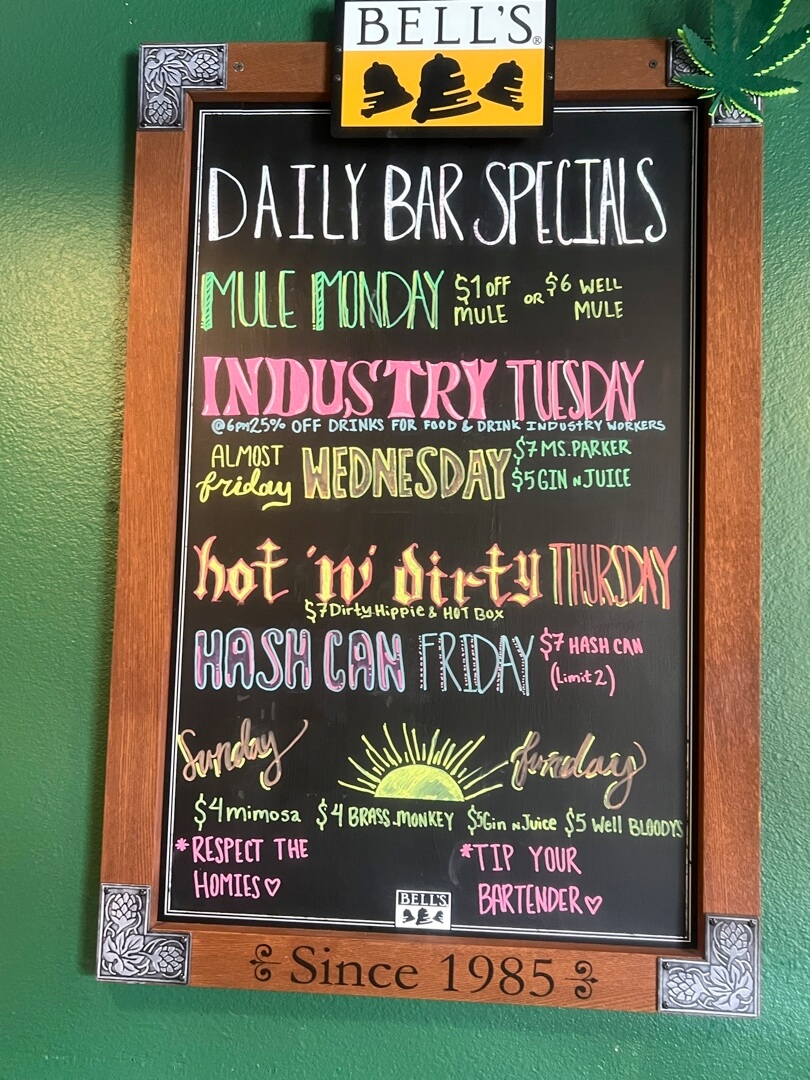 BELL'S®
DAILY BAR SPECIALS
MULE MONDAY $1 OFF MULE OR $6 WELL MULE
INDUSTRY TUESDAY
@6PM 25% OFF DRINKS FOR FOOD & DRINK INDUSTRY WORKERS
ALMOST friday WEDNESDAY $7 MS. PARKER
$5 GIN N JUICE
hot 'n' dirty THURSDAY
$7 Dirty Hippie & HOT BOX
HASH CAN FRIDAY $7 HASH CAN
(Limit 2)
Sunday Funday
$4 mimosa $4 BRASS MONKEY $5 Gin N Juice $5 Well BLOODYS
*RESPECT THE HOMIES♡
*TIP YOUR BARTENDER♡
BELL'S
Since 1985